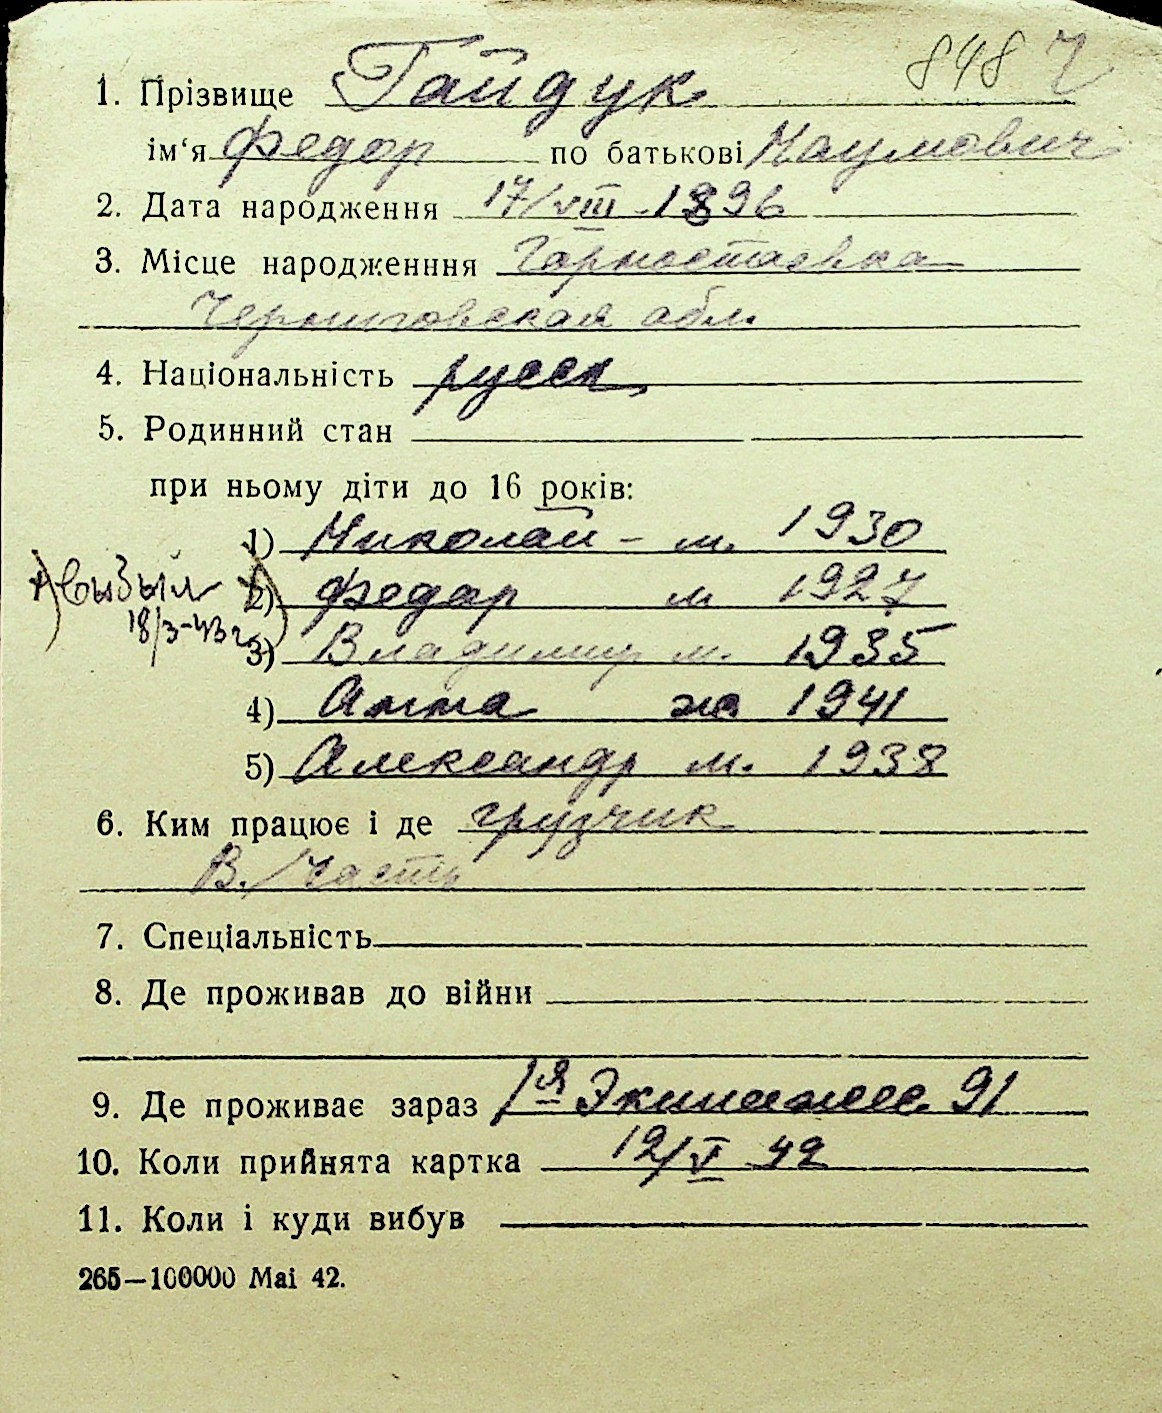 848 Ч
1. Прізвище Гайдук
ім'я Федор по батькові Наумович
2. Дата народження 17/VIII 1896
3. Місце народженння Гарностаевка
Черниговская обл.
4. Національність русск
5. Родинний стан
при ньому діти до 16 років:
1) Николай - м. 1930
выбыл 2) Федор м 1927
18/3-43 г. 3) Владимир м. 1935
4) Анна ж 1941
5) Александр м. 1938
6. Ким працює і де грузчик
В./Часть
7. Спеціальність
8. Де проживав до війни
9. Де проживає зараз 1я Экипажес. 91
10. Коли прийнята картка 12/V 42
11. Коли і куди вибув
265—100000 Маі 42.